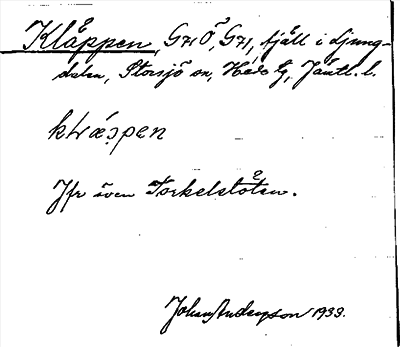 Klåppen, G71 Ö G71, fjäll i Ljung-
dalen, Storsjö sn, Hede tg, Jämtl. l.
Jfr även Torkelstöten.
Johan Anderzson 1933.